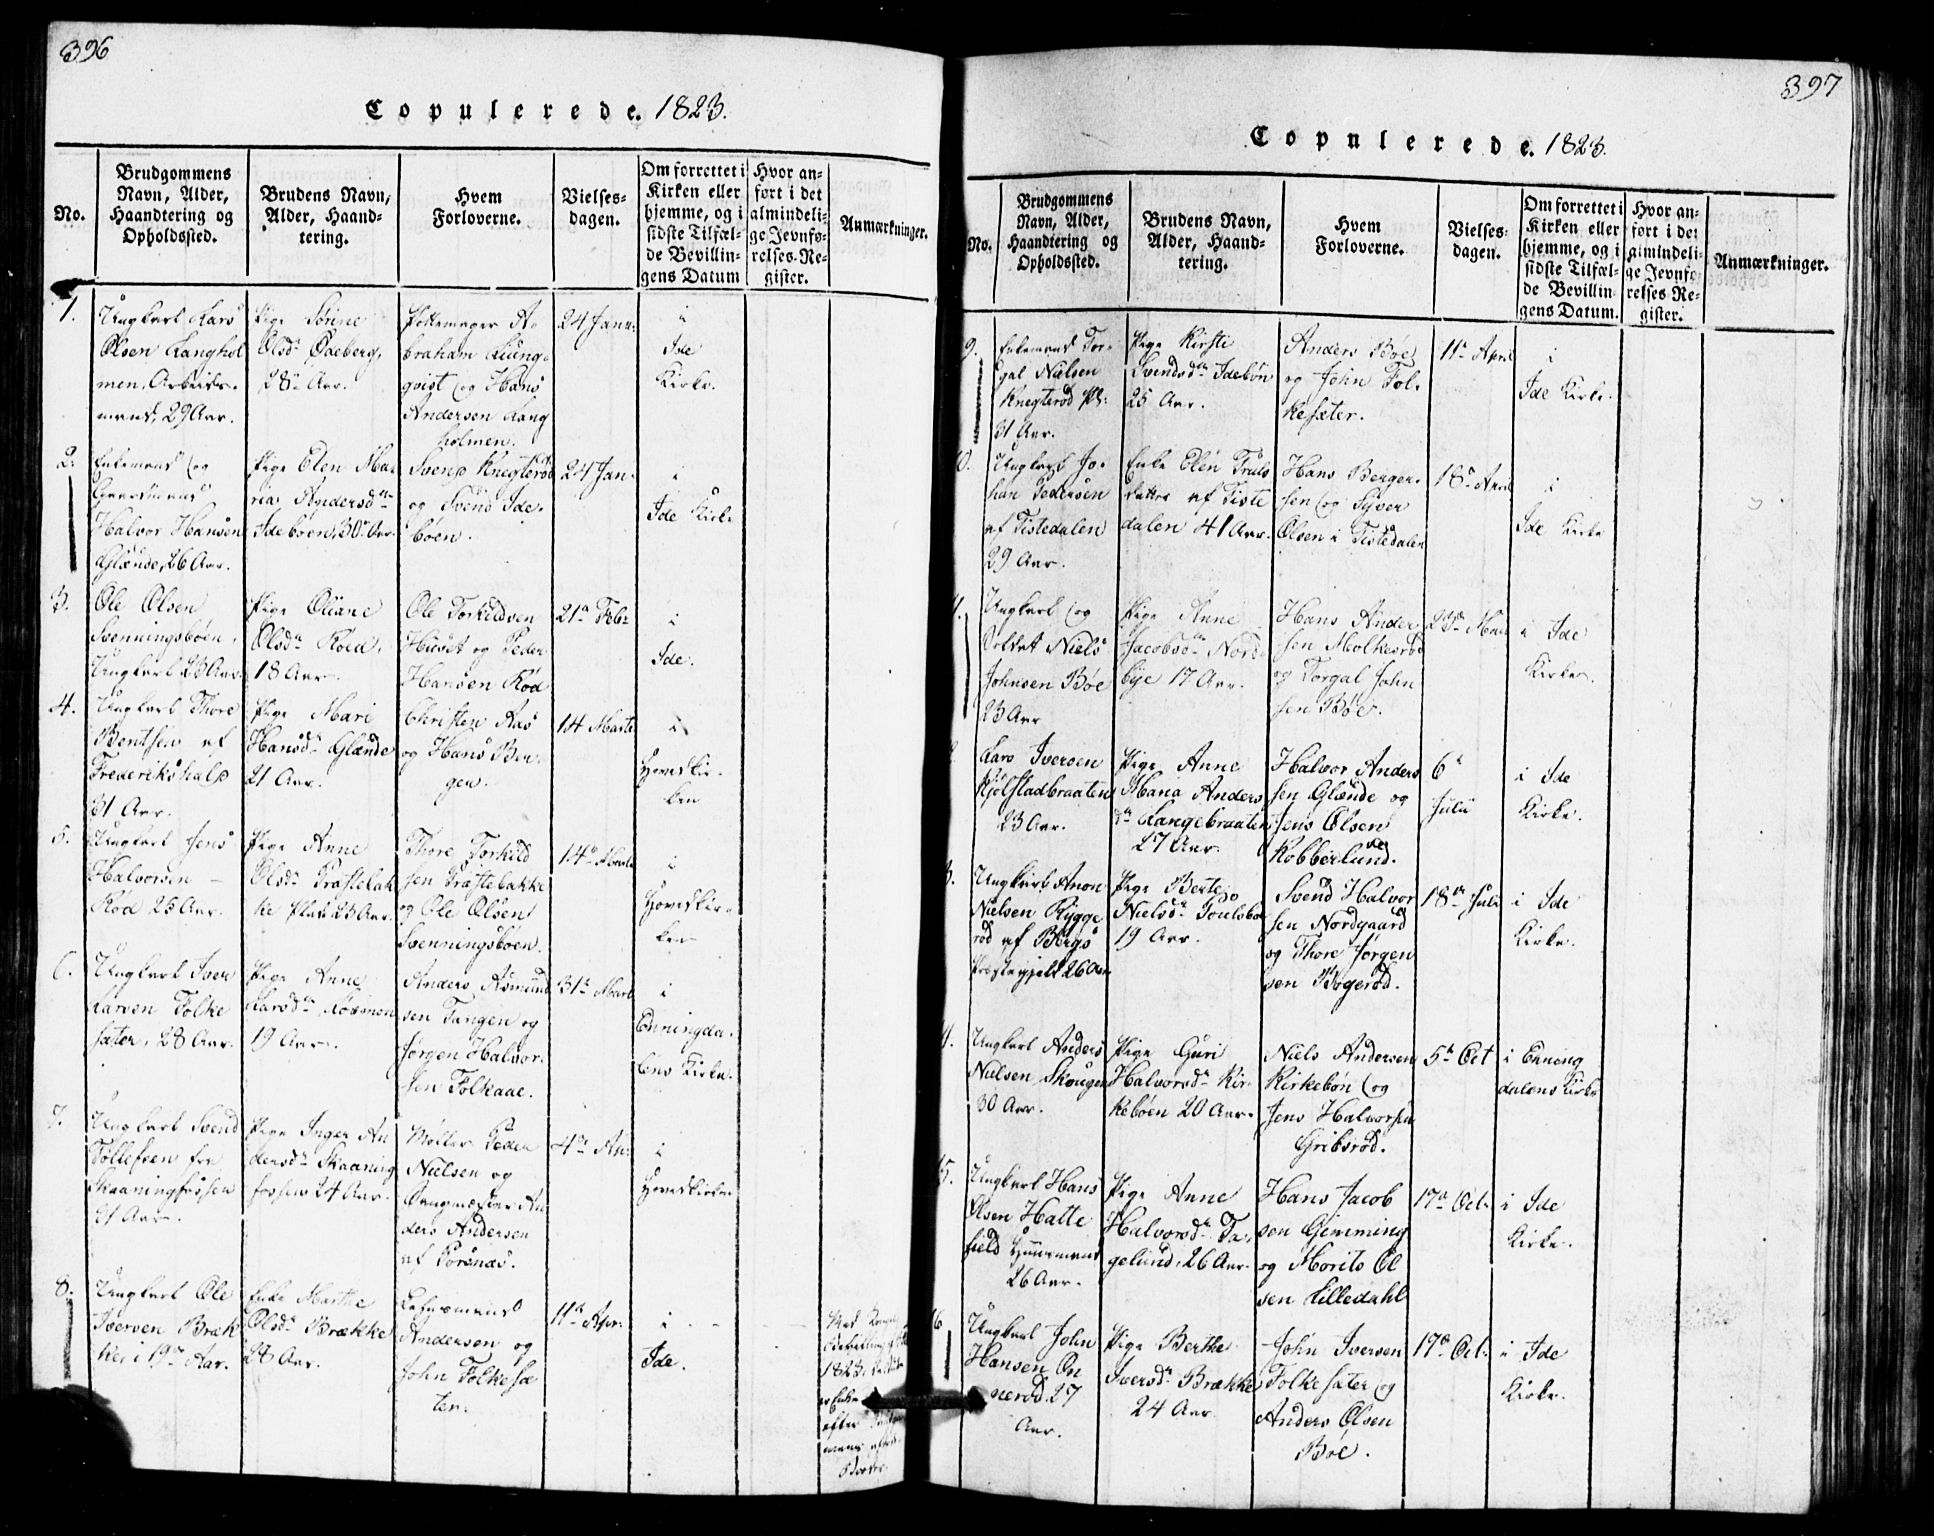 396
Copulerede. 1823.
No.
Brudgommens
Navn, Alder,
Haandtering og
Opholdssted.
Brudens Navn,
Alder, Haand-
tering.
Hvem
Forloverne.
Vielses-
dagen.
Om forrettet i
Kirken eller
hjemme, og i
sidste Tilfæl-
de Bevillin-
gens Datum
Hvor an-
ført i det
almindeli-
ge Jevnfø-
relses-Re-
gister.
Anmærkninger.
1.
Ungkarl Lars
Olsen Langhol
men, Arbeids-
mand, 29 Aar.
Pige Sørine
Olsd. Aaeberg,
28 Aar.
A-
braham Liung-
qvist og Hans
Andersen Lang
holmen.
24 Janu:
i
Ide
Kirke.
2.
Enkemand og
Gaardmand
Halvor Hansen
Glænde, 26 Aar.
Pige Elen Ma-
rea Andersd.
Idebøen, 30 Aar.
Svend Knegterød
og Svend Ide-
bøen.
24 Jan:
i
Ide Kirke
3.
Ole Olsen
Svenningsbøen,
Ungkarl 23 Aar.
Pige Oliane
Olsd. Røed,
18 Aar.
Ole Torkildsen
Huset og Peder
Hansen Rød
21 Feb:
i
Ide.
4.
Ungkarl Thore
Bentsen af
Frederikshald
31 Aar.
Pige Mari
Hansd. Glænde
21 Aar.
Christen Aas
og Hans Ber-
gen.
14 Marts
i
Hovedkir-
ken
5.
Ungkarl Jens
Halvorsen
Rød 25 Aar.
Pige Anne
Olsd. Præstebak
ke Plads 23 Aar.
Thore Torkild
sen Præstebakke
og Ole Olsen
Svenningsbøen.
14 Marts
i
Hovedkir-
ken
6.
Ungkarl Iver
Larsen Folke
sæter, 28 Aar.
Pige Anne
Larsd. Løsmon
19 Aar.
Anders Asmund
sen Tangen og
Jørgen Halvor-
sen Folkaae.
31 Marts
i
Enningda-
lens Kirke.
7.
Ungkarl Svend
Tollefsen fra
Skaaningfossen
21 Aar.
Pige Inger An
dersd. Skaaning
fossen 24 Aar.
Møller Peder
Nielsen og
Saugmester An
ders Andersen
af Porsnæs.
4 Ap:
i
Hovedkirken
8.
Ungkarl Ole
Iversen Bræk
ke, i 19 Aar.
Enke Marthe
Olsd. Brække
28 Aar.
Lehnsmand
Andersen og
John Folkesæ
ter.
11 Apr:
i
Ide.
1823
efter
397
Copulerede. 1823.
No.
Brudgommens
Navn, Alder,
Haandtering og
Opholdssted.
Brudens Navn,
Alder, Haand-
tering.
Hvem
Forloverne.
Vielses-
dagen.
Om forrettet i
Kirken eller
hjemme, og i
sidste Tilfæl-
de Bevillin-
gens Datum.
Hvor an-
ført i det
almindeli-
ge Jevnfø-
relses Re-
gister.
Anmærkninger.
9.
Enkemand Tor-
gal Nielsen
Knegterød Pl:
31 Aar.
Pige Kirsti
Svendsd. Idebøn
25 Aar.
Anders Bøe
og John Fol-
kesæter.
11 April
i
Ide Kirke.
10.
Ungkarl Jo-
han Pedersen
af Tistedalen
29 Aar.
Enke Elen Truls
datter af Tiste
dalen 41 Aar.
Hans Berger-
sen og Syver
Olsen i Tistedalen
18 April
i
Ide Kirke
11.
Ungkarl og
Soldat Niels
Johnsen Bøe
23 Aar
Pige Anne
Jacobsd. Nord-
bye 17 Aar.
Hans Ander
sen Molkesrød
og Torgal John
sen Bøe.
23 Mai
i Ide
Kirke.
Lars Iversen
Kjølstadbraaten
23 Aar.
Pige Anne
Maria Anders
d. Langebraaten
27 Aar.
Halvor Anders
sen Glænde og
Jens Olsen
Kobberlund.
6
Julii
i Ide
Kirke.
3.
Ungkarl Anon
Nielsen Rygge
rød af Bergs
Præstegjeld 26 Aar
Pige Berte
Nielsd. Poulsbo
19 Aar.
Svend Halvor
sen Nordgaard
og Thore Jørgen
sen Bøgerød.
18 Juli
i Ide
Kirke.
4.
Ungkarl Anders
Nielsen Skougen
30 Aar.
Pige Guri
Halvorsd. Kir-
kebøen 20 Aar.
Niels Andersen
Kirkebøn og
Jens Halvorsen
Gribsrød.
5 Oct
i Enning
dalens Kirke
15.
Ungkarl Hans
Olsen Hatte
field Huusmand
26 Aar.
Pige Anne
Halvorsd. Fa-
gelund, 26 Aar.
Hans Jacob
sen Gimming
og Morits Ol
sen Lilledahl
17 Oct.
i Ide
Kirke.
16
Ungkarl John
Hansen On
nerød. 27
Aar.
Pige Berthe
Iversd. Brække
24 Aar
John Iversen
Folkesæter og
Anders Olsen
Bøe.
17 Oct.
i Ide
Kirke.